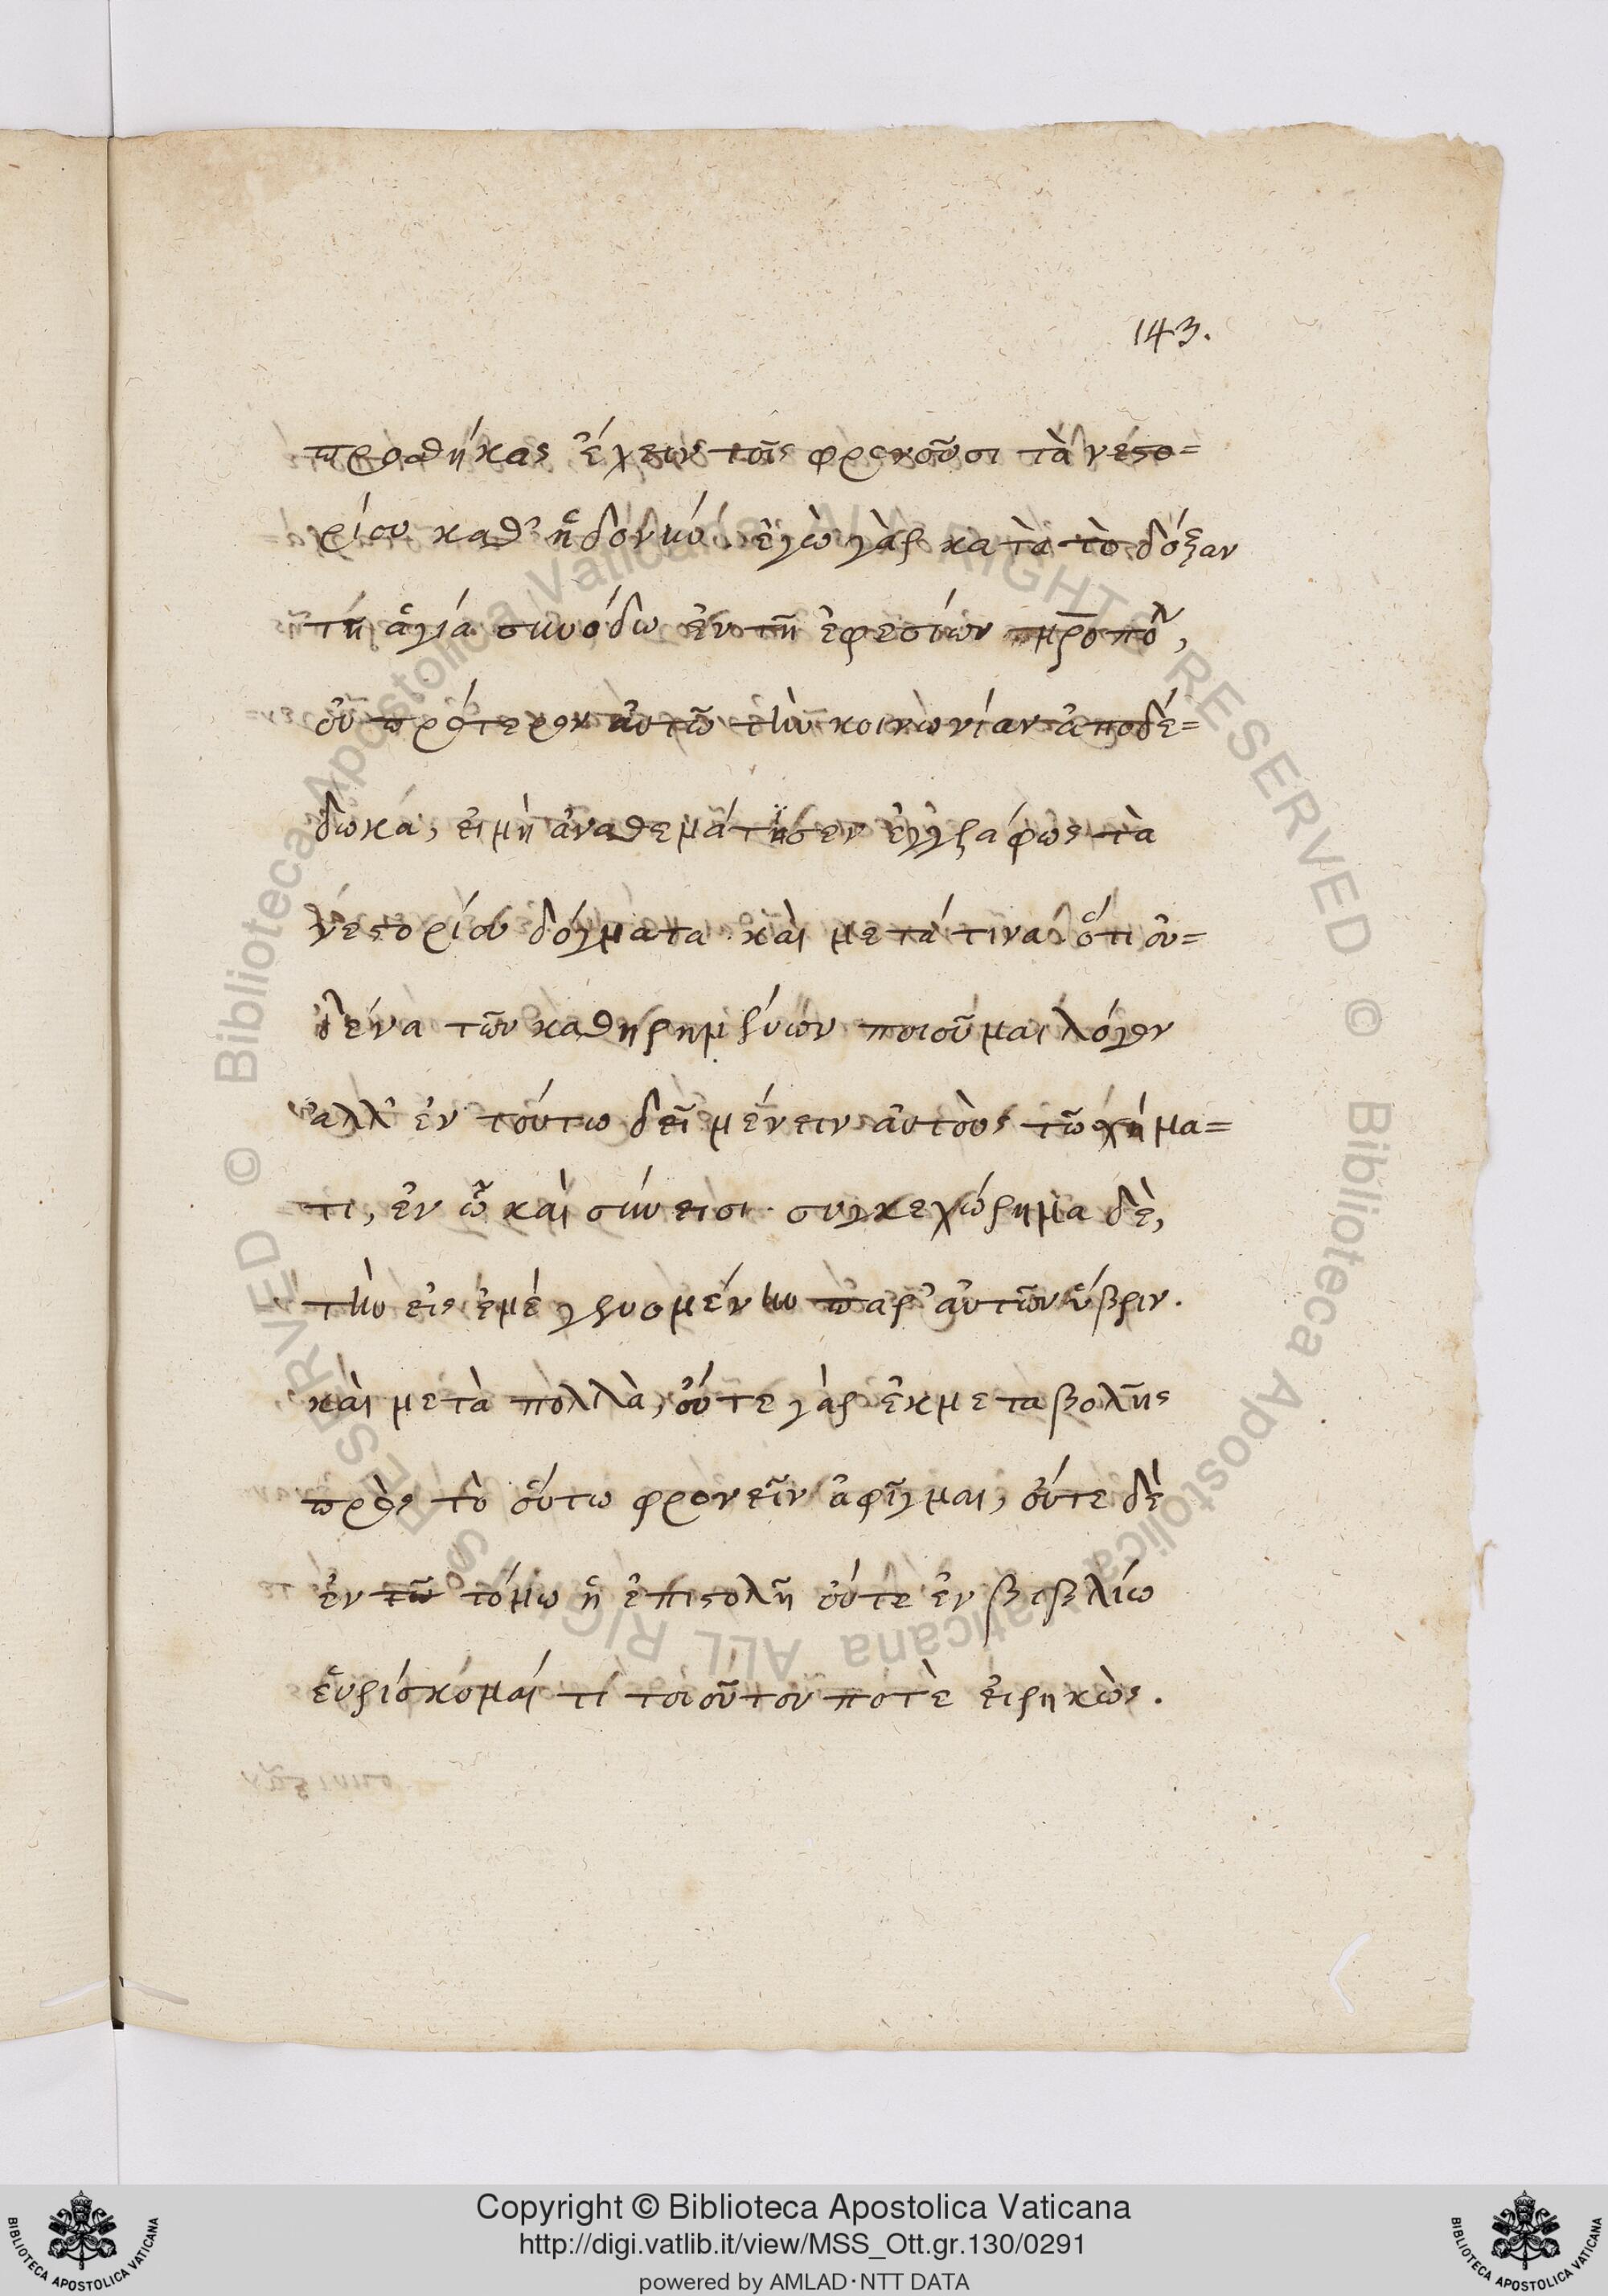 143.
προσθήκας ἔχειν τοῖς φρονοῦσι τὰ νεστο=
ρίου καθ' ἡδονὴν. ἐγὼ γὰρ κατὰ τὸ δόξαν
τῆ ἁγία συνόδω ἐν τῆ ἐφεσίων μροπόλ,
οὐ πρότερον αὐτῶ τὴν κοινωνίαν ἀποδέ=
δωκά, εἰμὴ ἀναθεμάτησεν ἐγγράφως τὰ
νεστορίου δόγματα. καὶ μετά τινα ὅτι οὐ=
δένα τῶν καθηρημένων ποιοῦμαι λόγον
ἀλλ' ἐν τούτω δεῖ μένειν αὐτοὺς τῶ σχήμα=
τι, ἐν ὧ καὶ σύνεισι. συγκεχώρημα δὲ,
τὴν εἰς ἐμὲ γενομένην παρ' αὐτῶν ὕβριν.
καὶ μετὰ πολλὰ, οὔτε γὰρ ἐκ μεταβολῆς
πρὸς τὸ οὕτω φρονεῖν ἀφῖγμαι, οὔτε δὲ
ἐν τῶ τόμω ἢ ἐπιστολῆ οὔτε ἐν βιβλίω
εὑρίσκομαί τι τοιοῦτον ποτὲ εἰρηκὼς.
© Biblioteca Apostolica Vaticana ALL RIGHTS RESERVED © Biblioteca Apostolica Vaticana ALL RIGHTS RESERVED
Copyright © Biblioteca Apostolica Vaticana
http://digi.vatlib.it/view/MSS_Ott.gr.130/0291
powered by AMLAD·NTT DATA
BIBLIOTECA APOSTOLICA VATICANA
BIBLIOTECA APOSTOLICA VATICANA